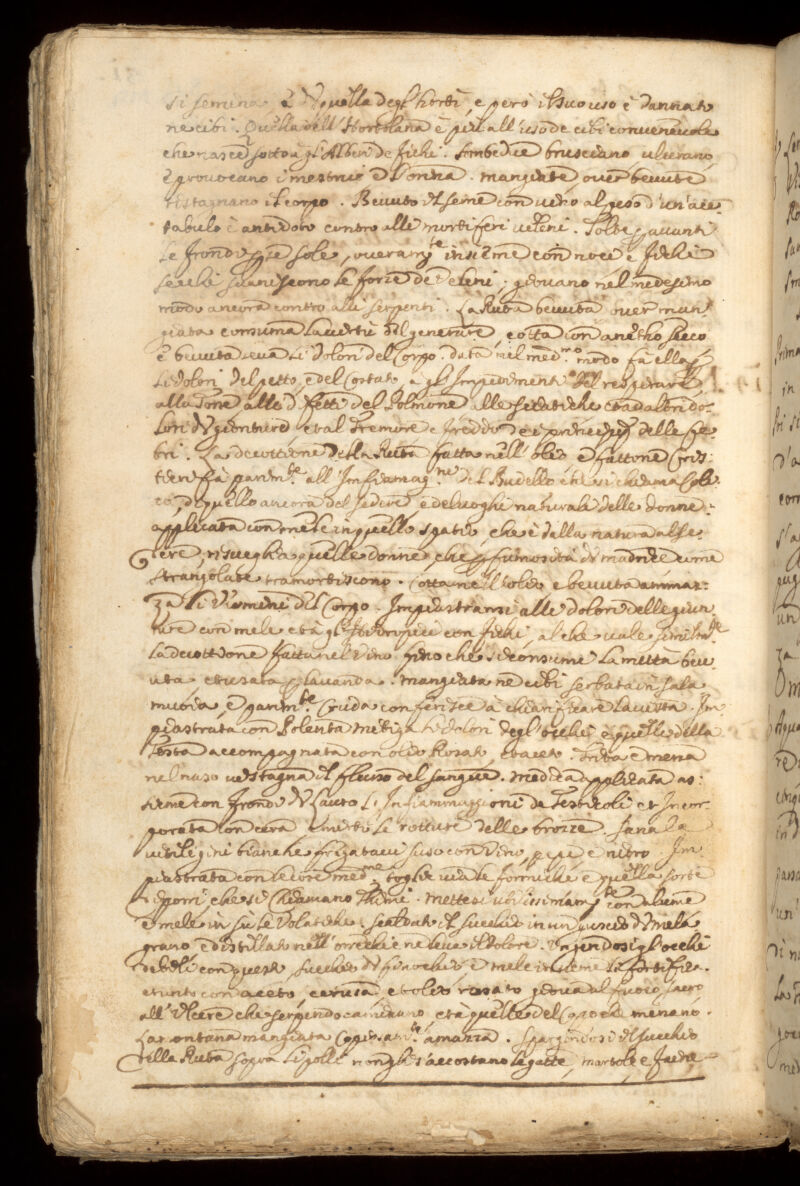 si semina è quella degl'horti, e però il suo uso è dannato
ne cibi. Quella dell'Hortolana è più all'uso de cibi convenevole
che nasce sotto a gl'Alberi de fichi. Ambedue brusciano ulcerano
e provocano i mestrui e l'orina. mangiate, over bevute
ristagnano il corpo. Bevuto il seme con vino al peso d'un ace
tabulo è antidoto contro alli mortiferi veleni. Tolte avanti
Le frondi per se sole, overam.te insieme con noci e fichi
secchi svaniscono le forze de veleni; giovano nel medesimo
modo ancora contro alli serpenti. La Ruta bevuta over man
giata consuma la virtù del generare, cotta con anetho secco
e bevuta leva li dolori del Corpo. data nel med.mo modo fa ella
Li dolori del petto, e del Costato, a gl'Impedimenti del respirare,
alla Tosse alli difetti del Polmone alle sciatiche et ad altri do
lori di gionture, et al Tremore e freddo e i principij delle fe
bri. La decottione della Ruta fatta nell'olio, e fattone Cris
tieri fa parim.te all'Infiamag.ne del Budello che si chiama Coli
co, di quello ancora del sedere, e de luoghi naturali delle donne.
applicata con mele in quello spatio, che è dalla natura al se
dere, risveglia quelle donne, che per fumosità di madrice come
strangolate tramortiscono. Cotta ne l'olio e bevuta ammaz
za li Vermini del Corpo. Impiastrasi alli dolori delle giun
ture con mele et a gl'Hidropici con fichi, al che vale similm.te
La decottione fatta nel Vino fino che si consumi la mettà bevu
ta et usata per lavanda. mangiata ne cibi serbata in sala
muoia, e parim.te Cruda conferisce a chiarificare la vista. Im
piastrata con Polenta mitiga li dolori degl'occhi e quelli della
Testa accompagnata con olio Rosato, et aceto. Trita e messa
nel naso ristagna il flusso del sangue. Medica applicata as
sieme con frondi di Lauro l'Infiammaggioni de Testicoli et Incor
porata con cera, e mirto le rotture delle brozze. sana la
vitiligini bianche frigatavi suso con vino, pepe e nitro. Im
piastrata con le cose med.me toglie via le formiche e quella sorte
di porri che si chiamano Thimi. mettesi utilissimam.te con alume
e mele in su le Volatiche. scaldato il succhio in un guscio di mela
grano e distillato nell'orecchie ne leva il dolore. Ungendosi gl'occhi
debili con questo succhio di finocchio e mele insieme li fortifica.
et unto con aceto, cerusa, et olio rosato giova al fuoco sacro
all'Ulcere che serpendo caminano, et a quelle del Capo che menano.
La montana mangiata Copiosam.te amazza. Spargendosi il succhio
della Ruta sopra li polli non gli s'accostano le gatte, martole e faine